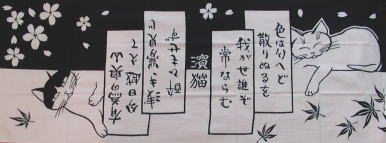 色は匂へど
散りぬるを
我が世誰ぞ
常ならむ
濱猫
有為の奥山
今日越えて
浅き夢見じ
酔ひもせず